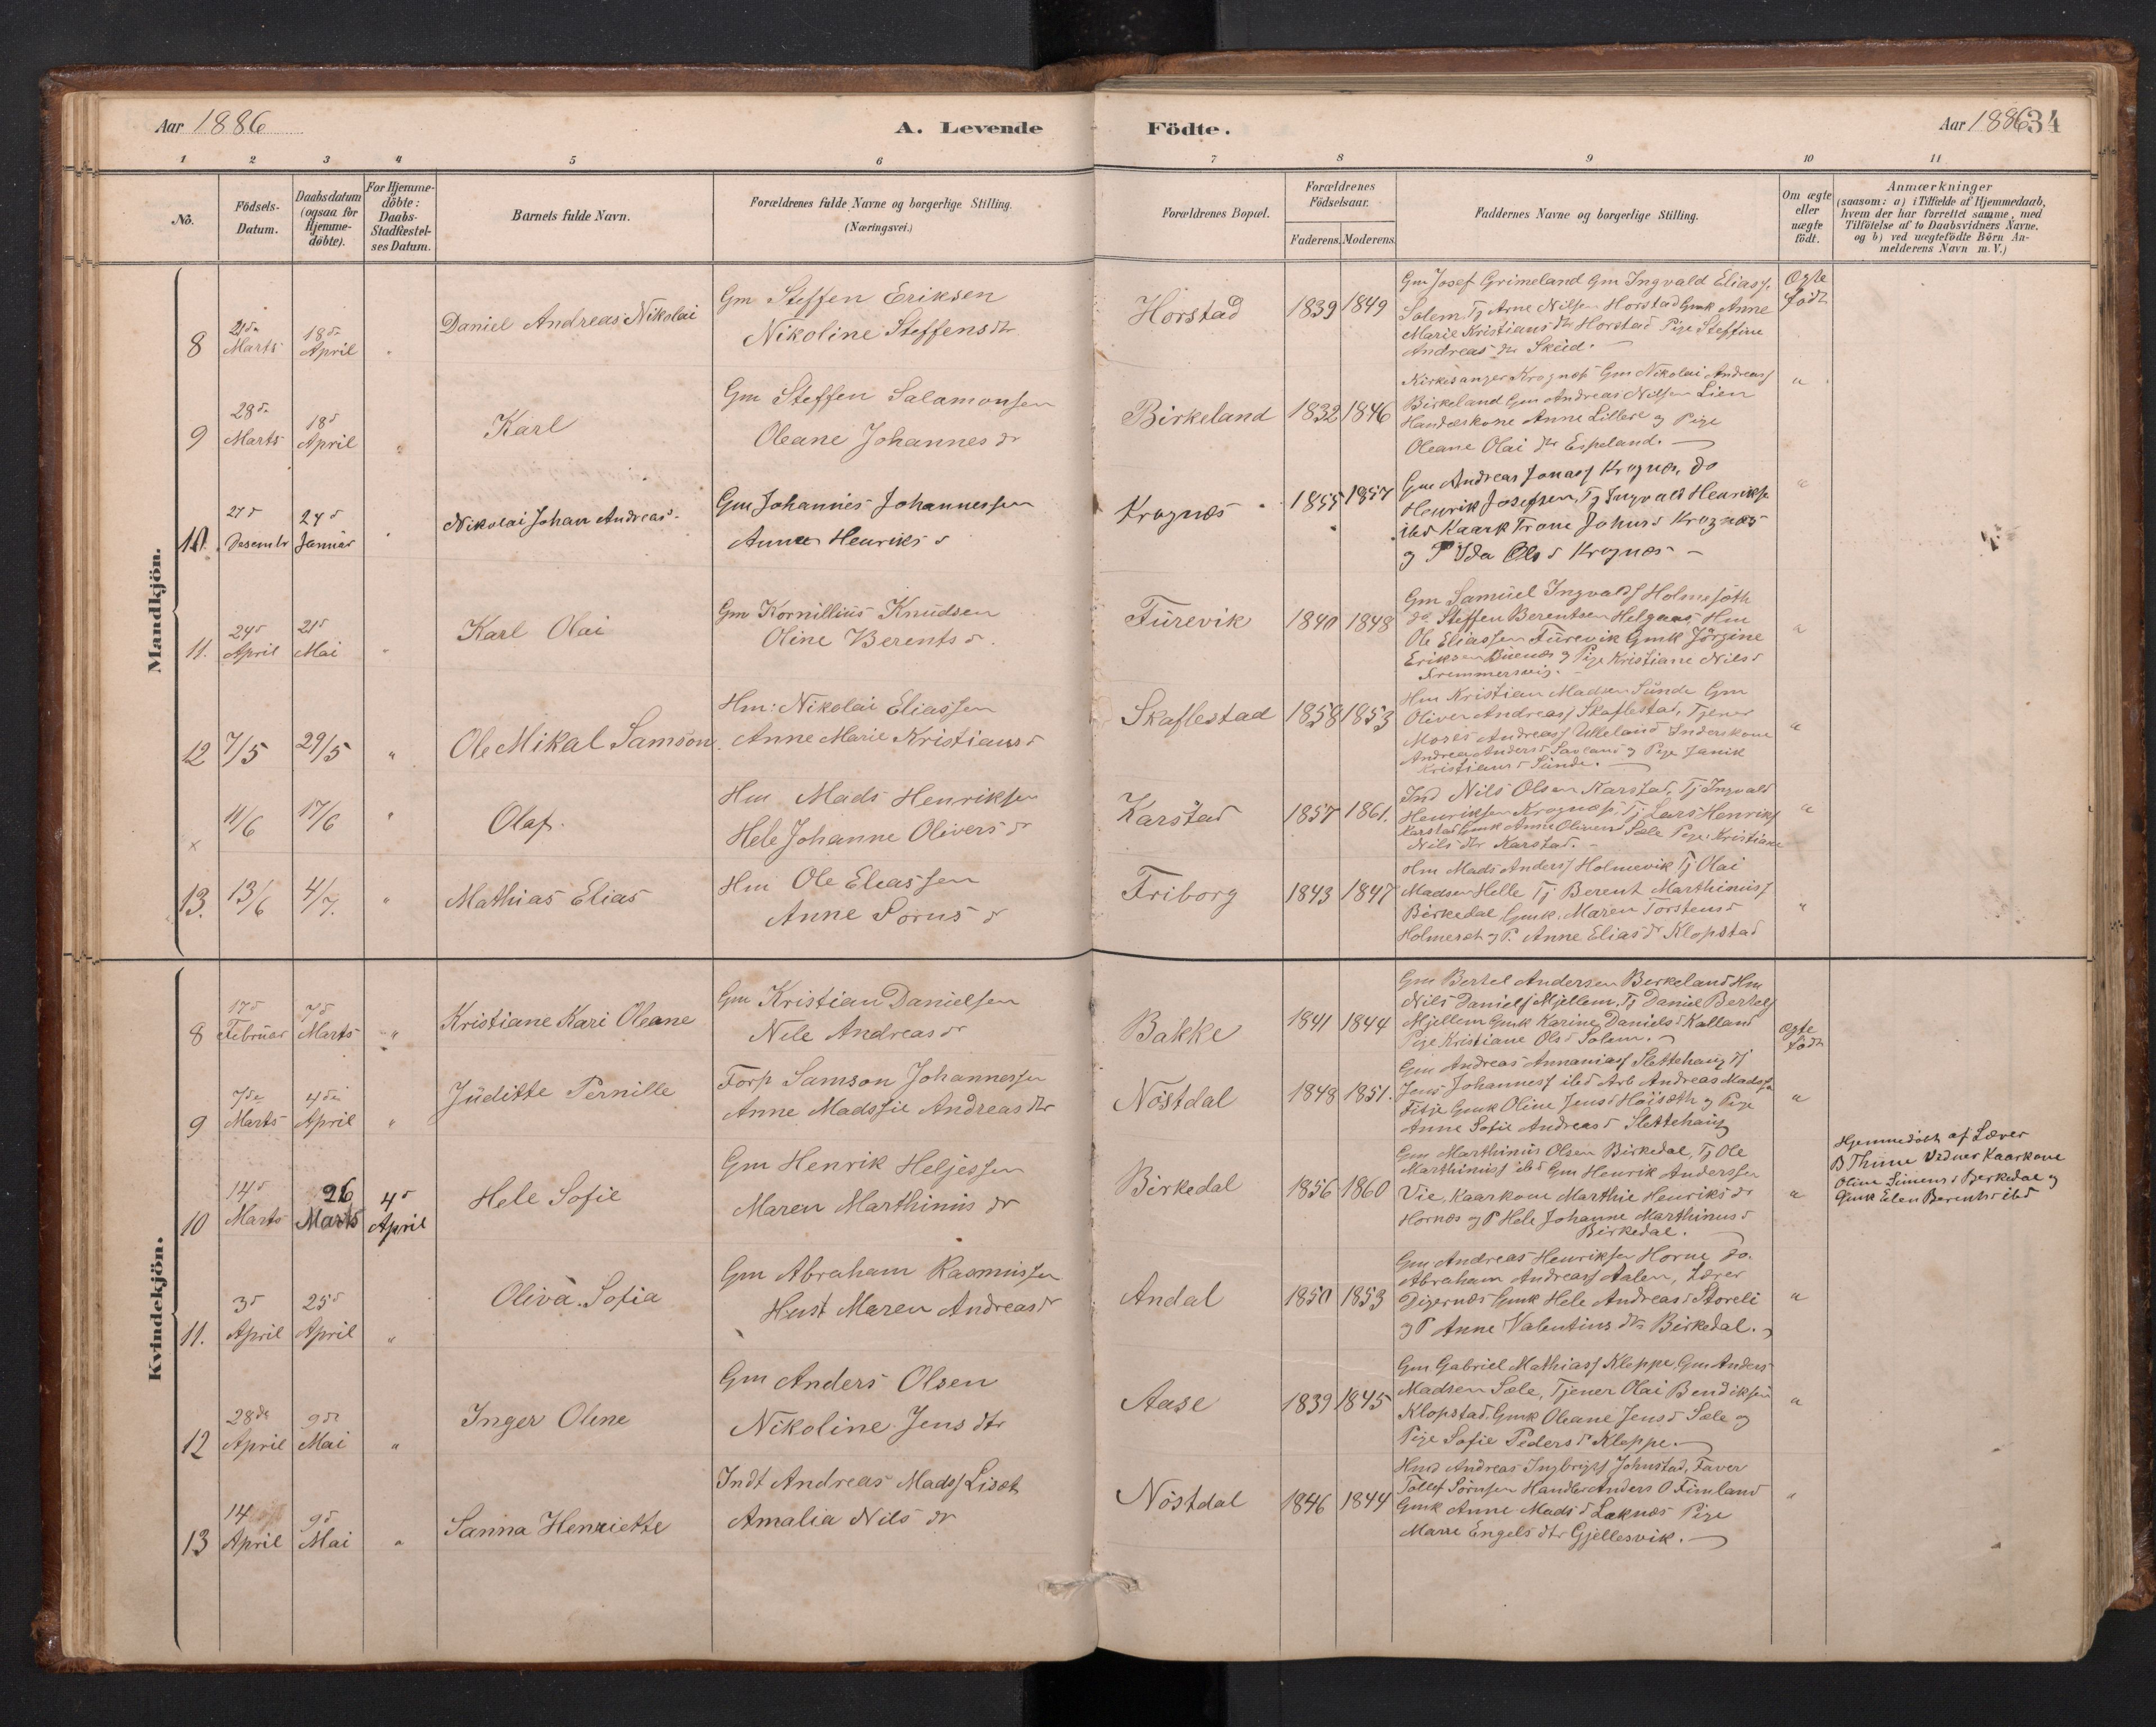 Aar 1886
A. Levende
Födte.
Aar 1886
34
1 2 3 4 5 6 7 8 9 10 11
No.
Födsels-Datum.
Daabsdatum (ogsaa for Hjemme-döbte).
For Hjemme-döbte: Daabs-Stadfæstel-ses Datum.
Barnets fulde Navn.
Forældrenes fulde Navne og borgerlige Stilling. (Næringsvei.)
Forældrenes Bopæl.
Forældrenes Födselsaar.
Faderens. Moderens.
Faddernes Navne og borgerlige Stilling.
Om ægte eller uægte födt.
Anmærkninger
(saasom: a) i Tilfælde af Hjemmedaab,
hvem der har forrettet samme, med
Tilföielse af to Daabsvidners Navne.
og b) ved uægtefödte Börn An-
melderens Navn m.V.)
Mandkjön.
8 21de Marts 18de April " Daniel Andreas Nikolai
Gm Steffen Eriksen
Nikoline Steffensdtr
Horstad 1839 1849
Gm Josef Grimeland Gm Ingvald Eliass.
Solem Tj Arne Nilsen Horstad Gmk Anne
Marie Kristiansdtr Horstad Pige Steffine
Andreasdtr Skeid.
Ægte födt
9 28de Marts 18d April " Karl
Gm Steffen Salamonsen
Oleane Johannesdr
Birkeland 1832 1846
Kirkesanger Krognæs Gm Nikolai Andreass
Birkeland Gm Andreas Nilsen Lien
Handelskone Anne Lillere og Pige
Oleane Olaidtr Espeland.
"
10. 27d Desembr 24d Januar " Nikolai Johan Andreas
Gm Johannes Johannessen
Anne Henriksd
Krognæs 1855 1857
Gm Andreas Jonass Krognæs, do
Henrik Josefsen, Tj Ingvald Henriks
ibd Kaark Trone Johnsd Krognæs
og P Ida Olsd Krognæs
"
11. 24d April 21d Mai " Karl Olai
Gm Kornillius Knudsen
Oline Berentsd.
Furevik 1840 1848
Gm Samuel Ingvalds Holmesöth
do Steffen Berentsen Helgaas, Hm
Ole Eliassen Furevik Gmk Jörgine
Eriksen Buenæs og Pige Kristiane Nilsd
"
12 7/5 29/5 " Ole Mikal Samson
Hm: Nikolai Eliassen
Anne Marie Kristiansd
Skaflestad 1858 1853
Hm Kristian Madsen Sunde Gm
Oliver Andreass Skaflestad, Tjener
Moses Andreass Ukkeland Inderskone
Andrea Andersd Savland og Pige Janik
Kristiansd Sunde.
"
x 11/6 17/6 " Olaf.
Hm Mads Henriksen
Hele Johanne Oliversdr
Karstad 1857 1861.
Ind Nils Olsen Karstad, Tj Ingvald
Henriksen Krognæs, Tj Lars Henriks
Karstad Gmk Anne Oliversd Sæle Pige Kristiane
Nilsdtr Karstad.
"
13. 13/6 4/7. " Mathias Elias
Hm Ole Eliassen
Anne Sörensd
Friborg 1843 1847
Hm Mads Anderss Holmevik Tj Olai
Madsen Helle Tj Berent Marthinuss
Birkedal Gmk. Maren Torstensd
Holmesæt og P. Anne Eliasdr Klopstad
"
Kvindekjön.
8 17d Februar 7d Marts " Kristiane Kari Oleane
Gm Kristian Danielsen
Nele Andreasdr
Bakke 1841 1844
Gm Bertel Andersen Berkeland Hm
Nils Daniels Mjellem, Tj Daniel Bertels
Mjellem Gmk Karine Danielsd Kalland
Pige Kristiane Olsd Solem.
Ægte födt
9 7de Marts 4de April " Juditte Pernille
Forp Samson Johannessen
Anne Madssie Andreasdtr
Nöstdal 1848 1851.
Gm Andreas Annaniass Slettehaug Tj
Jens Johanness ibd Arb Andreas Madss
Fitje Gmk Oline Jensd Höisæth og Pige
Anne Sofie Andreasd Slettehaug
"
10 14d Marts 26 Marts 4d April Hele Sofie
Gm Henrik Heljessen
Maren Marthinusdr
Birkedal 1856 1860
Gm Marthinus Olsen Birkedal, Tj Ole
Marthinuss ibd Gm Henrik Anderssen
Vie, Kaarkone Marthie Henriksdr
Hornæs og P Hele Johanne Marthinusd
Birkedal.
"
Hjemmedöbt af Lærer
B Thune Vidner Kaarkone
Oline Simensd Berkedal og
Gmk Elen Berentsd ibd
11. 3d April 25d April " Oliva Sofia
Gm Abraham Rasmussen
Hust Maren Andreasdr
Andal 1850 1853
Gm Andreas Henriksen Horne do.
Abraham Andreass Aalen, Lærer
Digernæs Gmk Hele Andreasd Storeli
og P Anne Valentinsdtr Birkedal.
"
12 28de April 9de Mai " Inger Oline
Gm Anders Olsen
Nikoline Jensdtr
Aase 1839 1845
Gm Gabriel Mathiass Kleppe, Gm Anders
Madsen Sæle, Tjener Olai Bendiksen
Klopstad, Gmk Oleane Jensd Sæle og
Pige Sofie Pedersd Kleppe.
"
13 14 April 9d Mai " Sanna Henriette
Indt Andreas Madss Liset
Amalia Nilsdr
Nöstdal 1846 1844
Hmd Andreas Ingbrigts Johnstad, Farver
Tollef Sörnsen Handler Anders O Fimland
Gmk Anne Madsd Løknæs Pige
Marie Engelsdtr Gjellesvik.
"